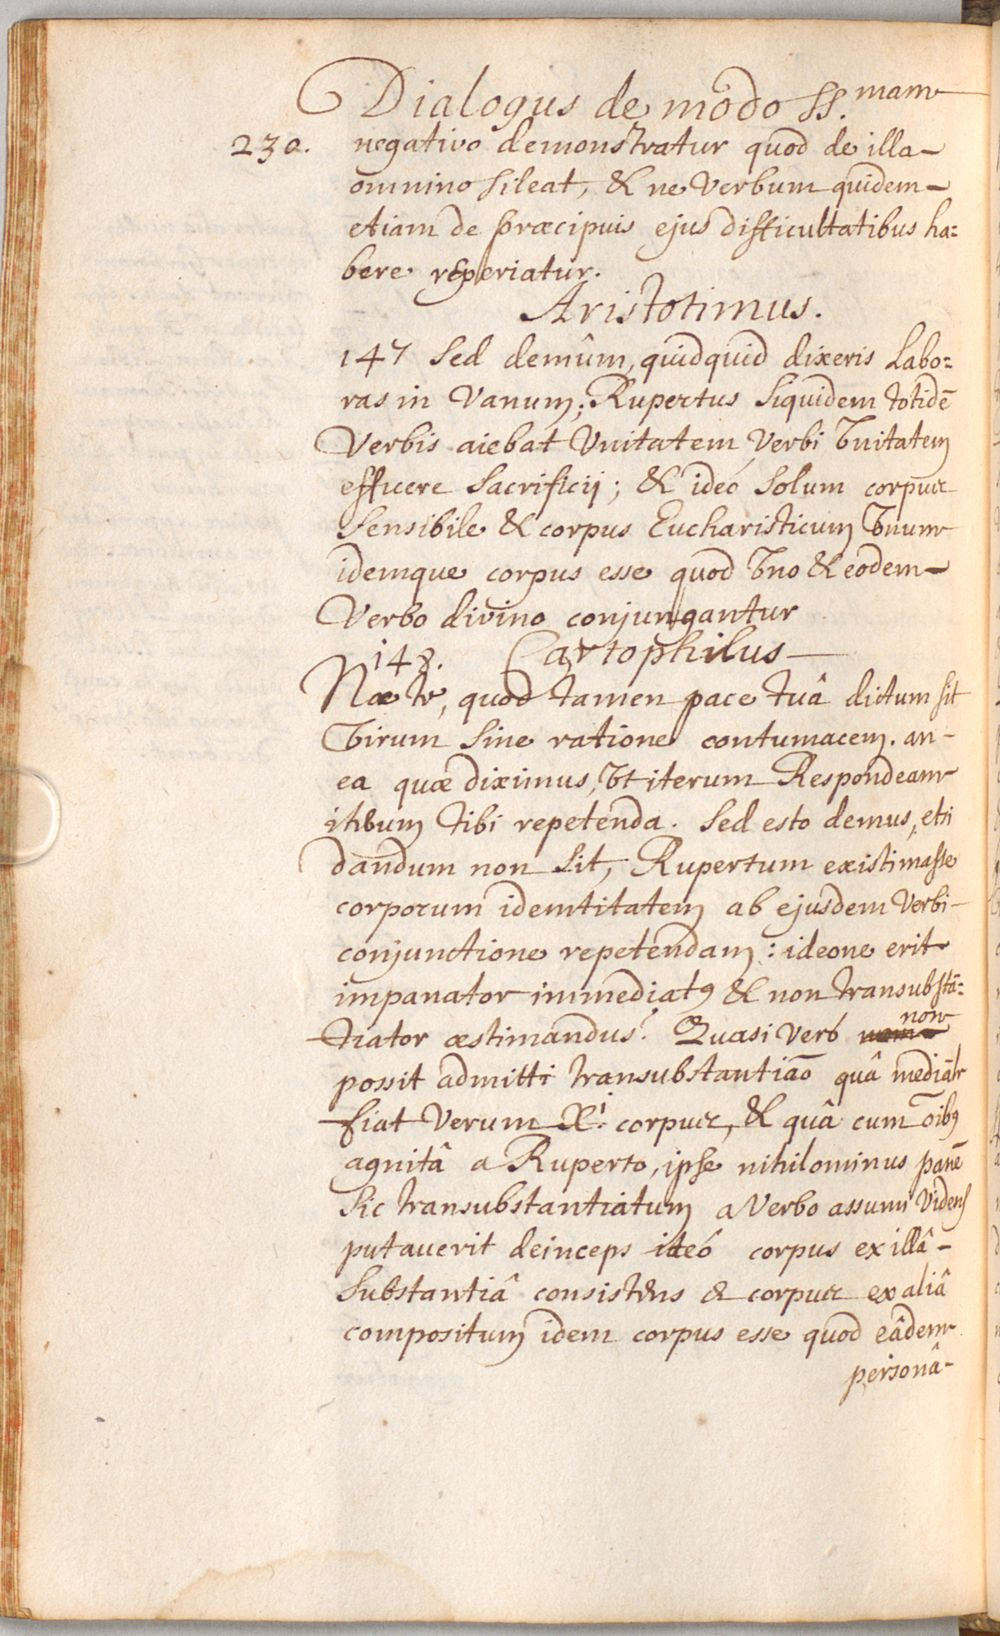 Dialogus de modo SS. mam
230. negativo demonstratur quod de illa-
omnino sileat, & ne Verbum quidem-
etiam de præcipuis ejus difficultatibus ha=
bere reperiatur.
Aristotimus.
147 Sed demûm, quidquid dixeris Labo=
ras in Vanum; Rupertus siquidem totidē
Verbis aiebat Vnitatem Verbi vnitatem
efficere Sacrificij; & ideo solum corpus
Sensibile & corpus Eucharisticum vnum
idemque corpus esse quod vno & eodem-
Verbo divino conjungantur
148. Cartophilus
Næ te, quod tamen pace tuâ dictum sit
virum sine ratione contumacem. an-
ea quæ diximus, vt iterum Respondeam
itibum tibi repetenda. Sed esto demus, etsi
dandum non sit, Rupertum existimasse
corporum idemtitatem ab ejusdem Verbi-
conjunctione repetendam: ideone erit
impanator immediatꝰ & non transubstā=
tiator æstimandus? Quasi verò non
possit admitti transubstantiāo quâ mediāte
fiat Verum Xi. corpus, & quâ cum oībꝰ
agnitâ a Ruperto, ipse nihilominus panē
sic transubstantiatum a Verbo assumi Videns
putauerit deinceps ideó corpus ex illâ-
Substantiâ consistens & corpus ex aliâ
compositum idem corpus esse quod eâdem
personâ-